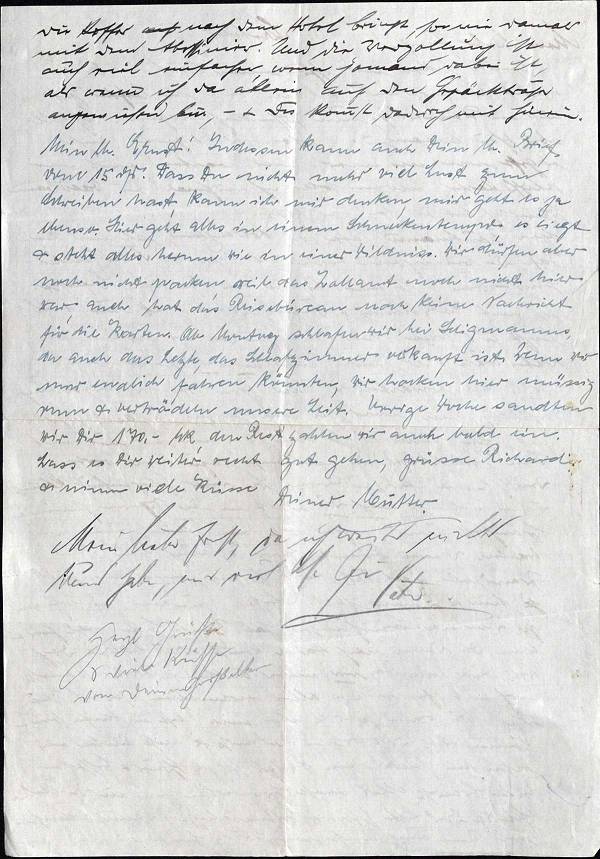 die Koffer auf nach dem Hotel bringt, so wie damals
mit dem Abessinier. Und die Verzollung ist
auch viel einfacher wenn jemand dabei ist
als wenn ich da allein auf den Gepäckträger
angewiesen bin, - & Du kommst dadurch mit hinein.
Mein lb. Ernst! Indessen kam auch Dein lb. Brief
vom 15. ds. Dass Du nicht mehr viel Lust zum
Schreiben hast kann ich mir denken mir geht es ja
ebenso. Hier geht alles in einem Schneckentempo es liegt
& steht alles herum wie in einer Wildniss. Wir dürfen aber
noch nicht packen weil das Zollamt noch nicht hier
war auch hat das Reisebüreau noch keine Nachricht
für die Karten. Ab Montag schlafen wir bei Seligmanns,
da auch das Letzte das Schlafzimmer verkauft ist. Wenn wir
nur endlich fahren könnten, wir hocken hier müssig
rum & verträdeln unsere Zeit. Vorige Woche sandten
wir Dir 170.- Mk den Rest zahlen wir auch bald ein.
Lass es Dir weiter recht gut gehen, grüsse Richard
& nimm viele Küsse
Deiner Mutter.
Mein lieber Ernst, da ich weiter nicht
Vater
Herzl Grüsse
& viele Küsse
von Deiner